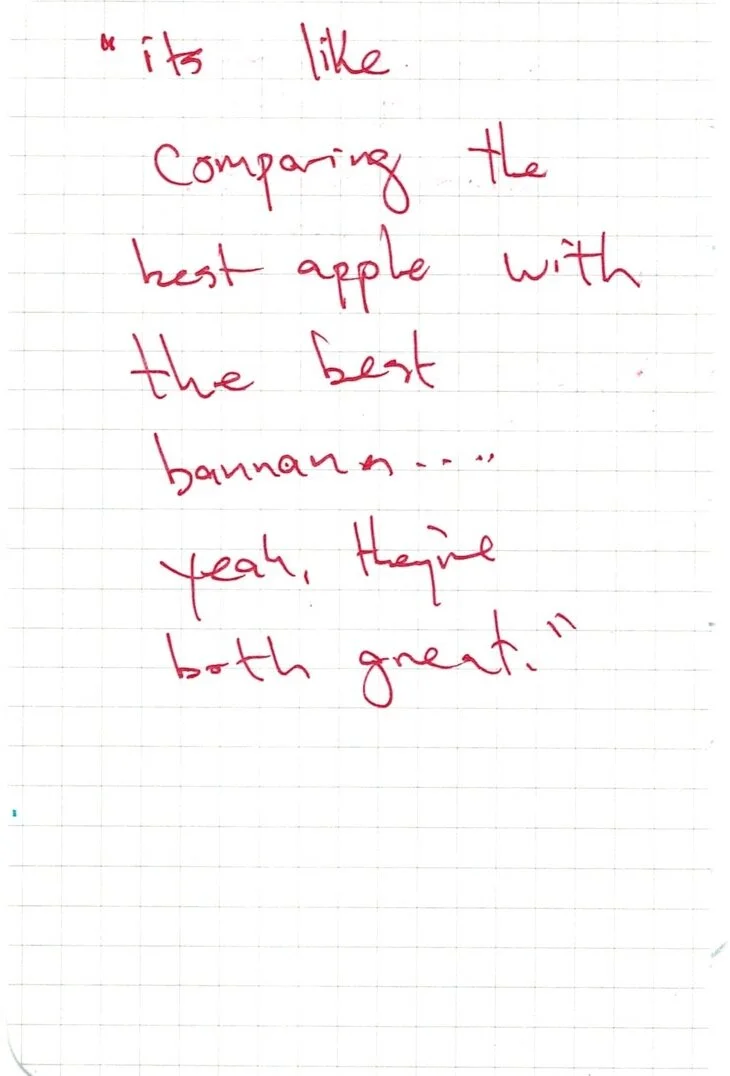 "its like
Comparing the
best apple with
the best
bannana....
yeah, they're
both great."